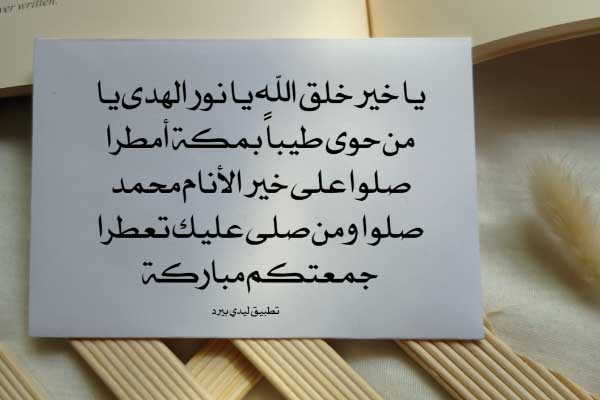 ver written.
يا خير خلق اللّه يا نور الهدى يا
من حوى طيباً بمكة أمطرا
صلوا على خير الأنام محمد
صلوا ومن صلى عليك تعطرا
جمعتكم مباركة
تطبيق ليدي بيرد